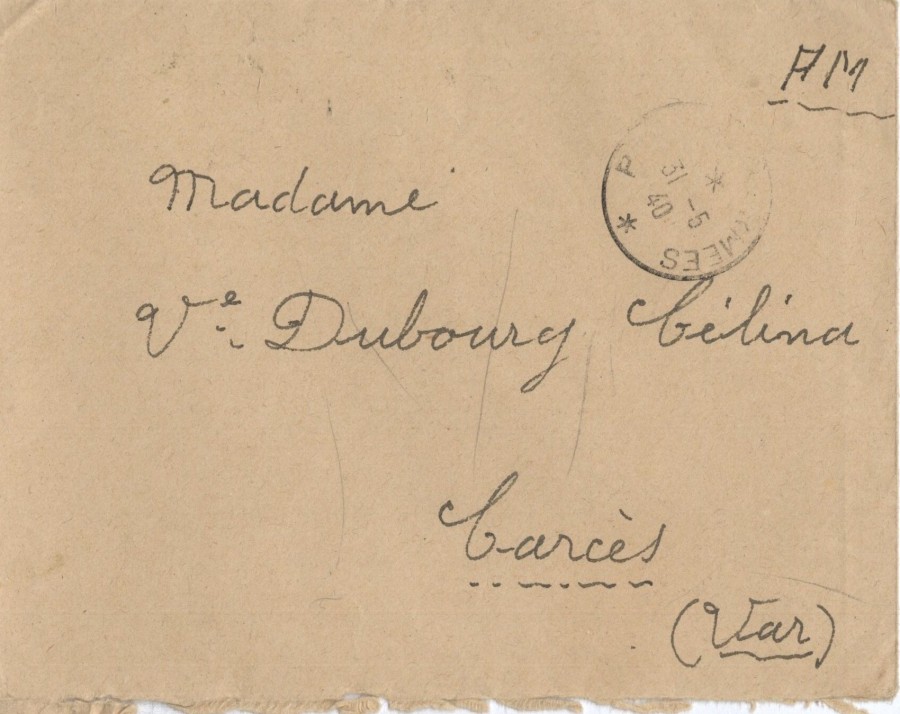 FM
Madame
Vᵉ Dubourg Célina
Carcès
(Var)
P
*
31 -5
40
*
MEES